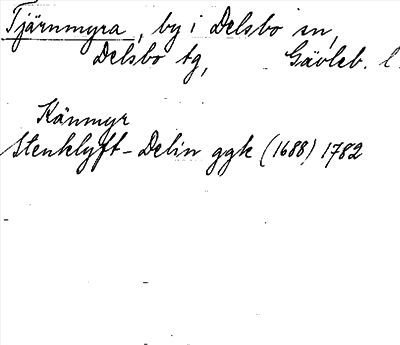 Tjärnmyra, by i Delsbo sn,
Delsbo tg, Gävleb. l.
Känmyr
Stenklyft-Delin ggk (1688) 1782